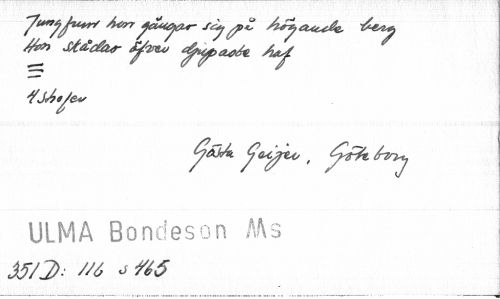 Jungfrun hon gångar sig på högande berg
Hon skådar öfver djupaste haf
≡
4 strofer
Gösta Geijer, Göteborg
ULMA Bondeson Ms
351 D: 116 s 465